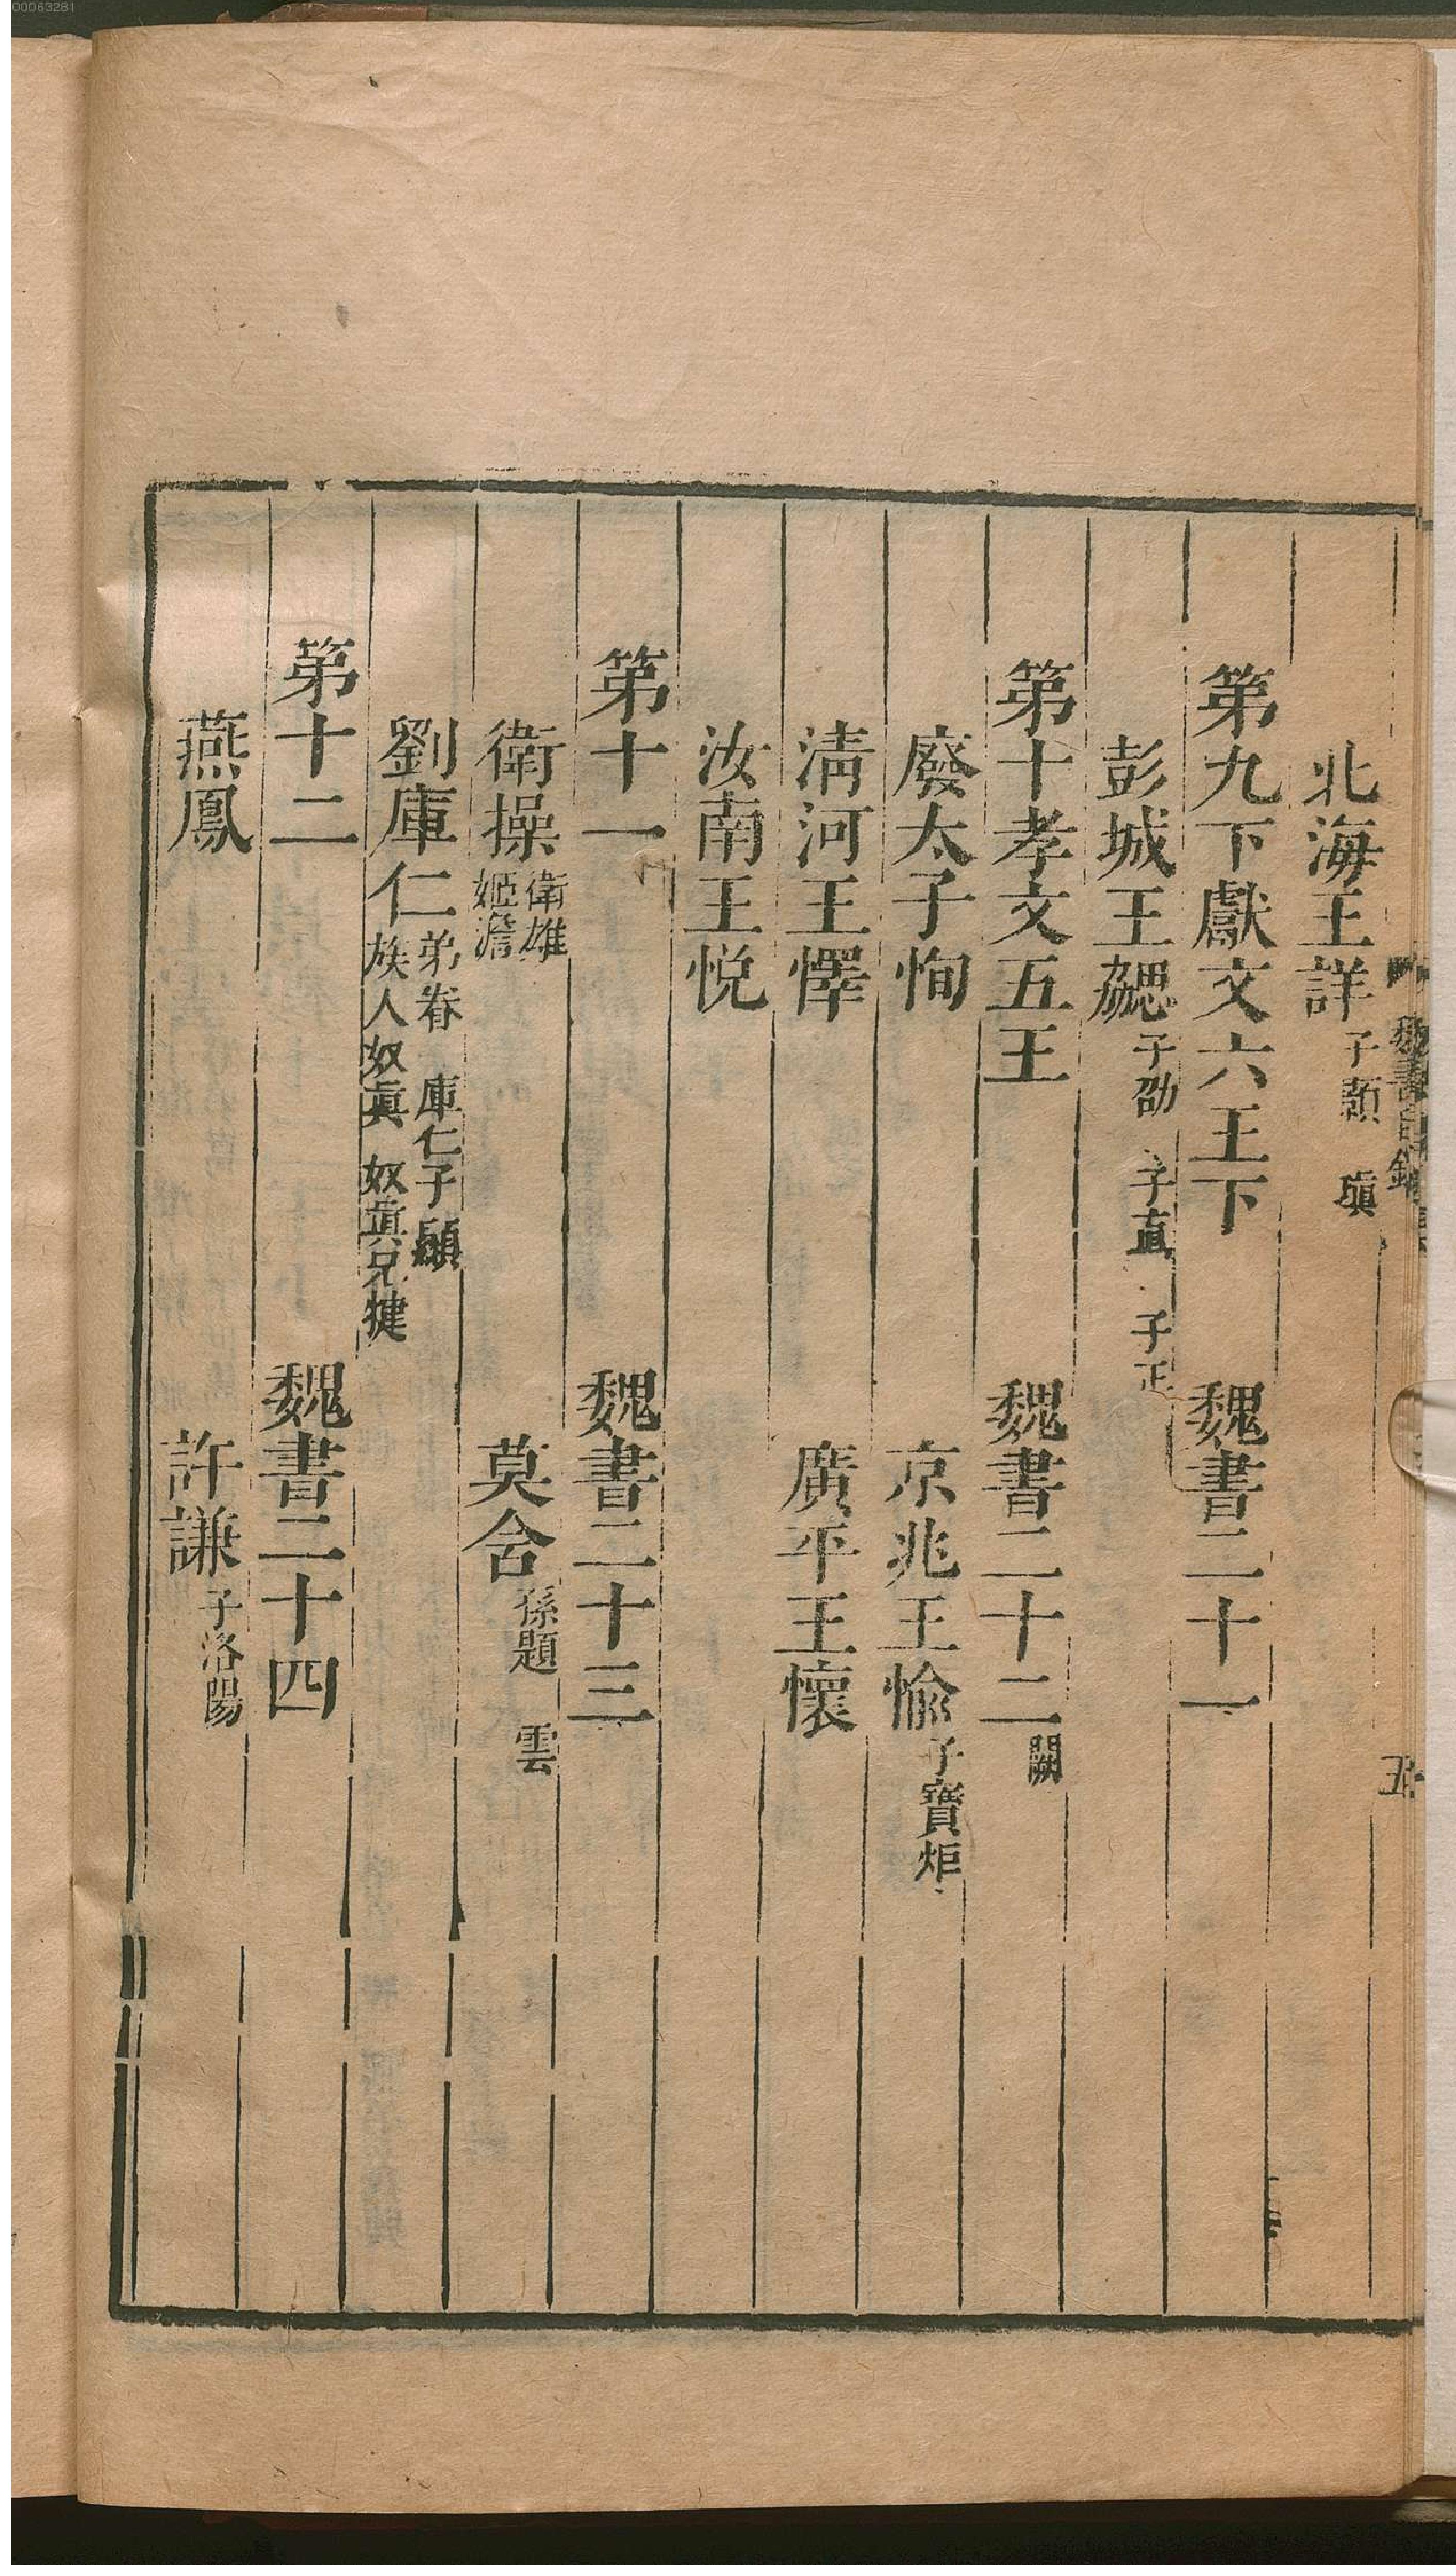 00063281
北海王詳子顥 瑱
第九下獻文六王下 魏書二十一
彭城王勰子劭 子直 子正
第十孝文五王 魏書二十二闕
廢太子恂 京兆王愉子寶炬
淸河王懌 廣平王懷
汝南王悅
第十一 魏書二十三
衛操衛雄 姬澹 莫含孫題 雲
劉庫仁弟眷 庫仁子顯 族人奴眞 奴眞兄犍
第十二 魏書二十四
燕鳳 許謙子洛陽
魏書目錄
五